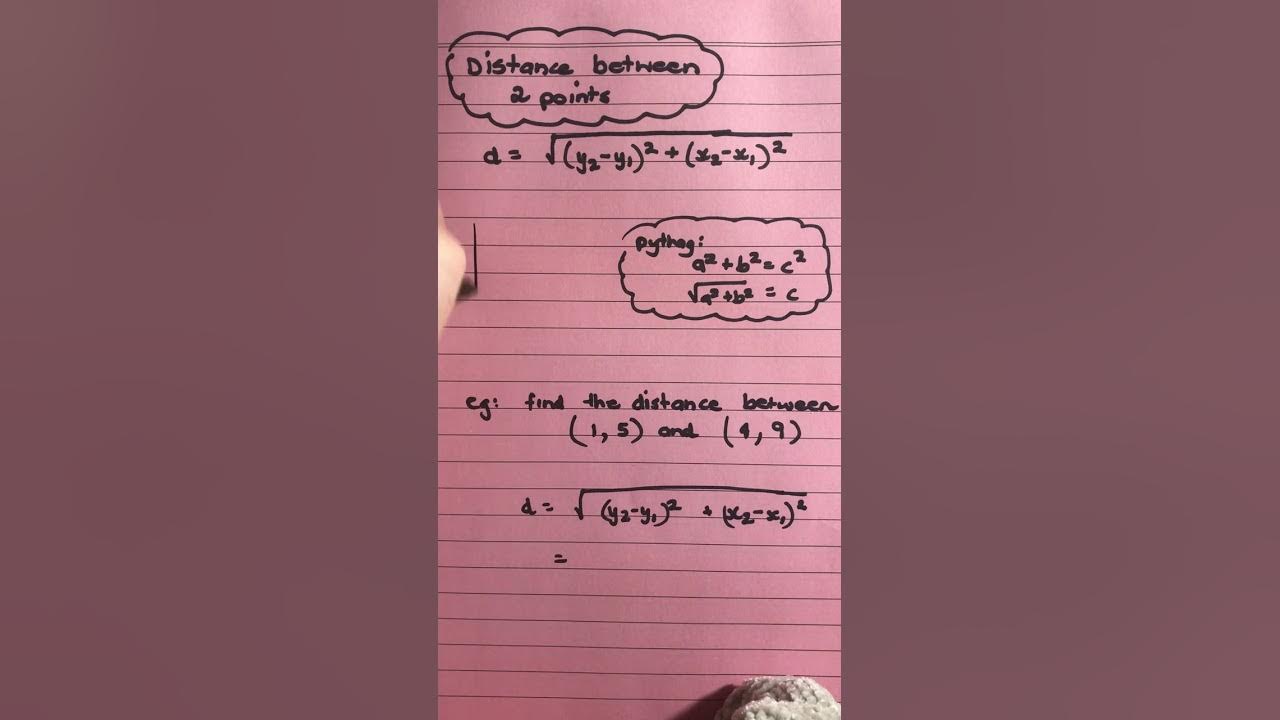 Distance between
2 points
d = √(y₂-y₁)² + (x₂-x₁)²
pythag:
a² + b² = c²
√a² + b² = c
eg: find the distance between
(1, 5) and (4, 9)
d = √(y₂-y₁)² + (x₂-x₁)²
=